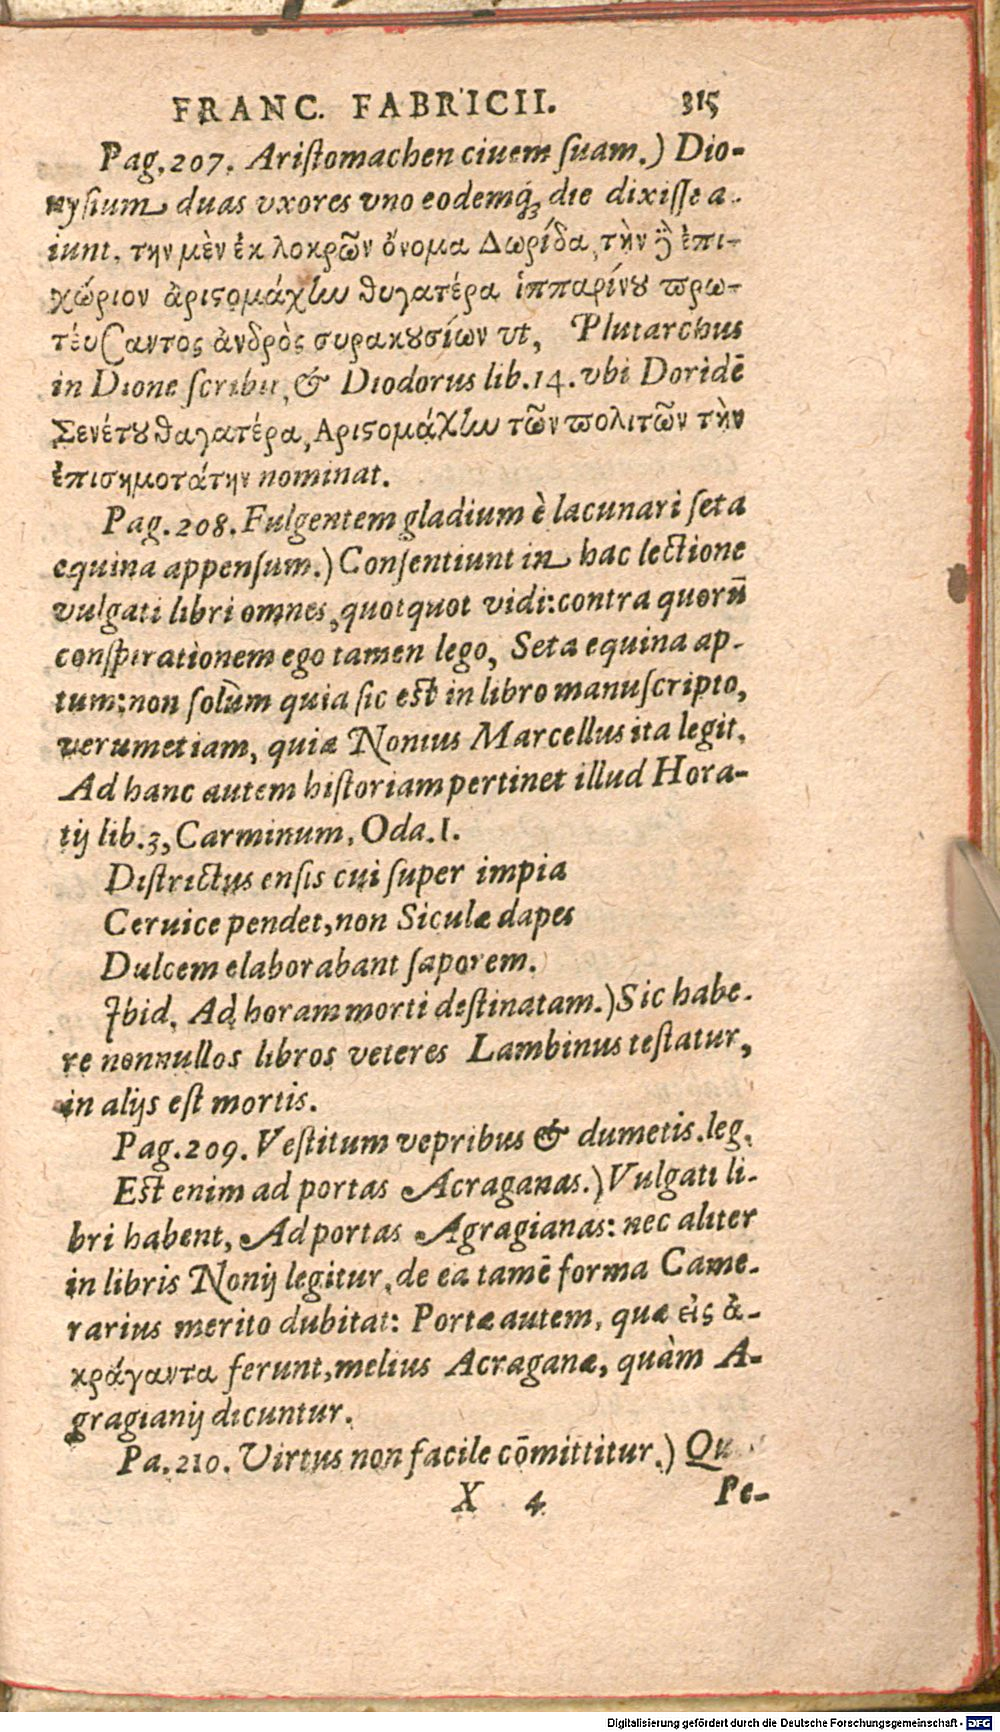 FRANC. FABRICII. 315
Pag.207. Ariſtomachen ciuem ſuam.) Dio-
nyſium duas vxores vno eodemq́; die dixiſſe a-
iunt, την μὲν ἐκ λοκρῶν ὄνομα Δωρίδα, τὴν ȣ̓͂ ἐπι-
χώριον ἀριϛομάχlω θυγατέρα ἱππαρίνȣ πρω-
τέυσαντος ἀνδρὸς συρακȣσίων vt, Plutarchus
in Dione ſcribit, & Diodorus lib.14. vbi Doridē
Σενέτȣ θαγατέρα, Αριϛομάχlω τῶν πολιτῶν τὴν
ἐπισημοτάτην nominat.
Pag.208. Fulgentem gladium è lacunari ſeta
equina appenſum.) Conſentiunt in hac lectione
vulgati libri omnes, quotquot vidi: contra quorū
conſpirationem ego tamen lego, Seta equina ap-
tum: non ſolùm quia ſic eſt in libro manuſcripto,
verumetiam, quia Nonius Marcellus ita legit.
Ad hanc autem hiſtoriam pertinet illud Hora-
tij lib.3, Carminum, Oda.I.
Diſtrictus enſis cui ſuper impia
Ceruice pendet, non Siculæ dapes
Dulcem elaborabant ſaporem.
Ibid. Ad horam morti deſtinatam.) Sic habe-
re nonnullos libros veteres Lambinus teſtatur,
in alijs eſt mortis.
Pag.209. Veſtitum vepribus & dumetis.leg.
Eſt enim ad portas Acraganas.) Vulgati li-
bri habent, Ad portas Agragianas: nec aliter
in libris Nonij legitur, de ea tamē forma Came-
rarius merito dubitat: Portæ autem, quæ εἰς ἀ-
κράγαντα ferunt, melius Acraganæ, quàm A-
gragianij dicuntur.
Pa.210. Virtus non facile cōmittitur.)
X 4 Pe-
Digitalisierung gefördert durch die Deutsche Forschungsgemeinschaft - DFG